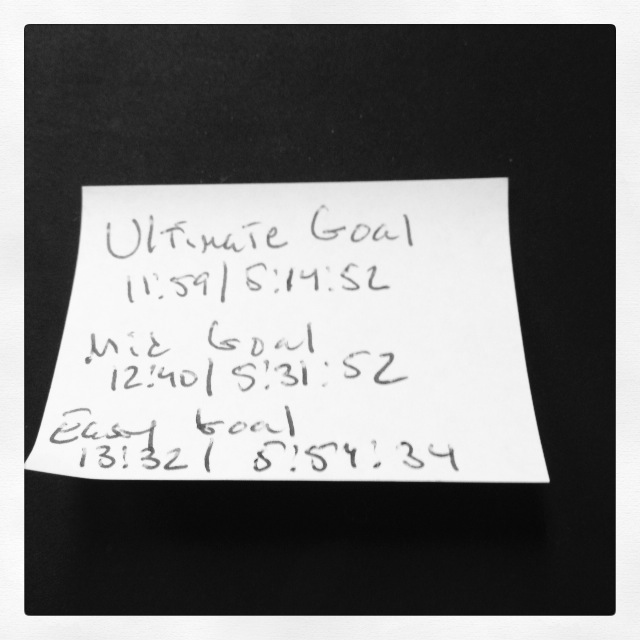 Ultimate Goal
11:59 / 5:14:52
Mid Goal
12:40 / 5:31:52
Easy Goal
13:32 / 5:54:34